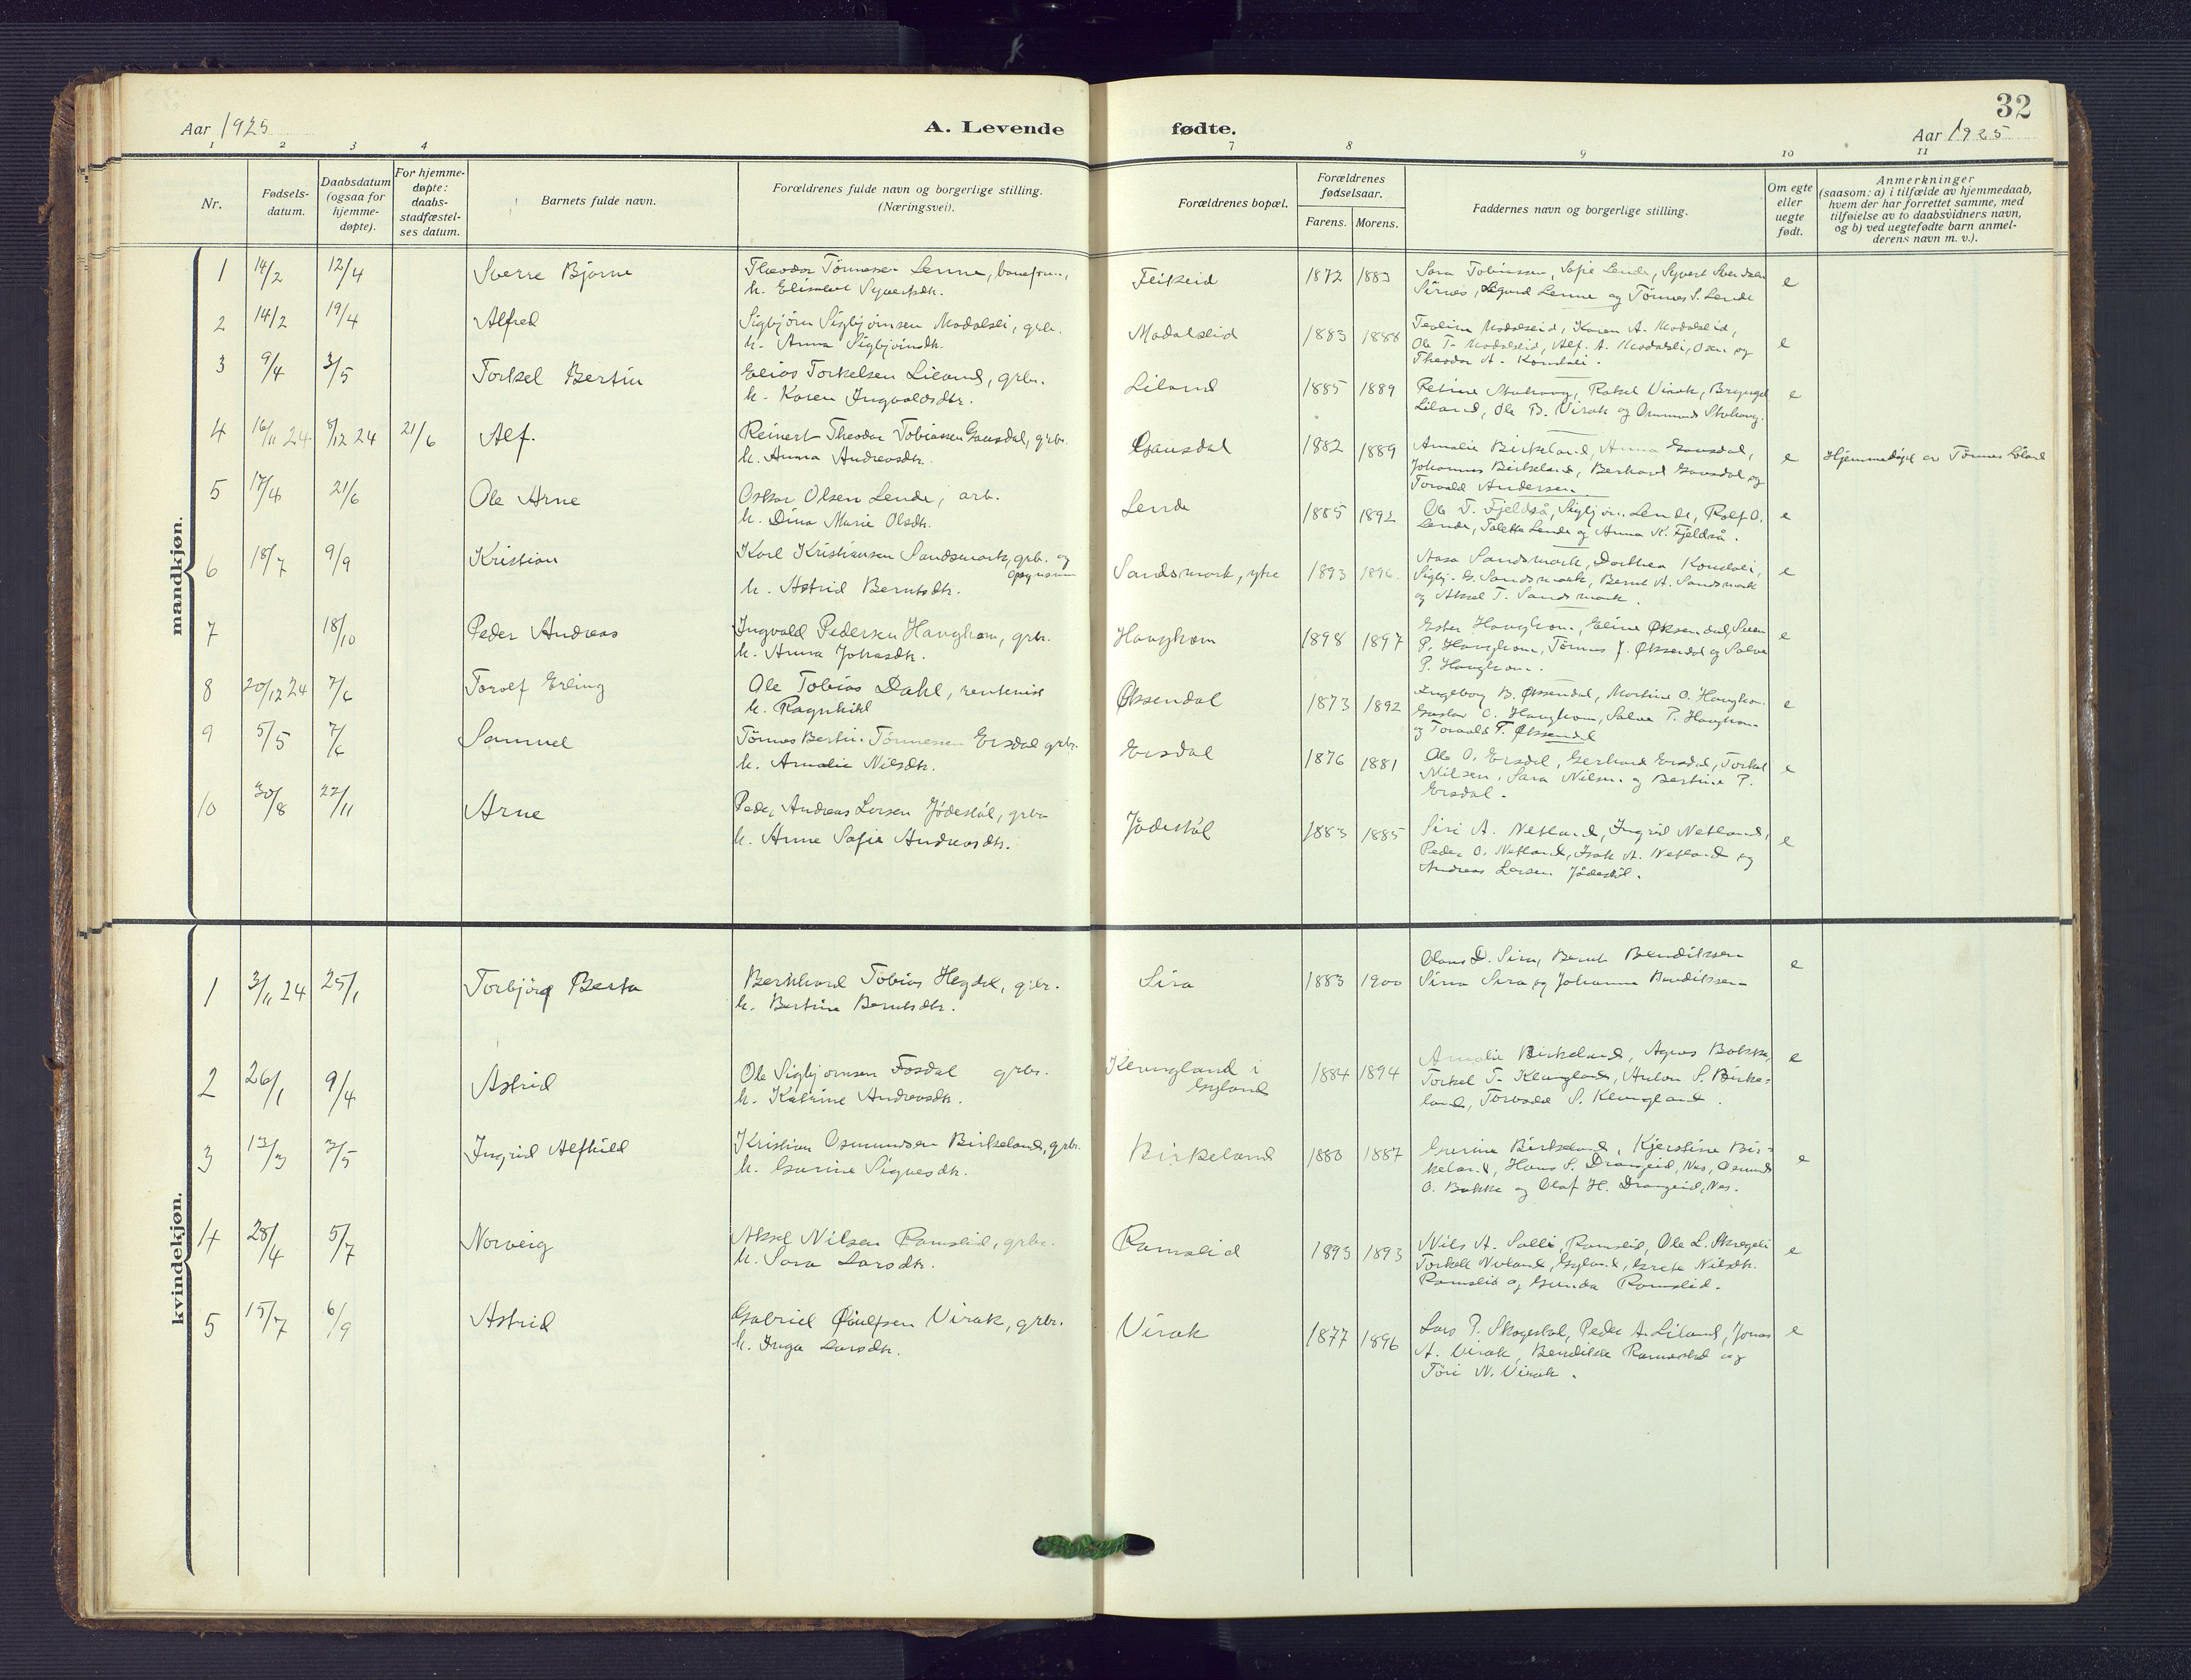 32
Aar 1925
A. Levende fødte.
Aar 1925
1 2 3 4 7 8 9 10 11
Nr.
Fødsels-
datum.
Daabsdatum
(ogsaa for
hjemme-
døpte).
For hjemme-
døpte:
daabs-
stadfæstel-
ses datum.
Barnets fulde navn.
Forældrenes fulde navn og borgerlige stilling.
(Næringsvei).
Forældrenes bopæl.
Forældrenes
fødselsaar.
Farens. Morens.
Faddernes navn og borgerlige stilling.
Om egte
eller
uegte
født.
Anmerkninger
(saasom: a) i tilfælde av hjemmedaab,
hvem der har forrettet samme, med
tilføielse av to daabsvidners navn,
og b) ved uegtefødte barn anmel-
derens navn m. v.).
mandkjøn.
1 14/2 12/4 Sverre Bjarne Theodor Tönnessen Lenne, Feikeid 1872 1883 Sara Tobiassen, Sofie Lende, Syvert e
h. Elisabet Syvertsdtr. Sirnes, Sigurd Lenne og Tönnes S. Lende
2 14/2 19/4 Alfred Sigbjörn Sigbjörnsen Modalsli, grbr. Modalslid 1883 1888 Teoline Modalslid, Karen A. Modalslid, e
h. Anna Sigbjörnsdtr. Ole T. Modalslid, Alf. A. Modalsli, og
Theodor A. Kondali.
3 9/4 3/5 Torkel Bertin Elias Torkelsen Liland, grbr. Liland 1885 1889 Petine Stuhaug, Rakel Virak, Liland, e
h. Karen Ingvaldsdtr. Liland, Ole B. Virak og Ommund Stuhaug.
4 16/11 24 8/12 24 21/6 Alf. Reinert Theodor Tobiassen Gausdal, grbr. Gausdal 1882 1889 Amalie Birkeland, Anna Gausdal, e Hjemmedöpt av Tönnes Löland
h. Anna Andreasdtr. Johannes Birkeland, Berhard Gausdal og
Torvald Andersen.
5 17/4 21/6 Ole Arne Oskar Olsen Lende, arb. Lende 1885 1892 Ole T. Fjeldså, Sigbjörn Lende, Rolf O. e
h. Dina Marie Olsdtr. Lende, Toletta Lende og Anna K. Fjeldså.
6 18/7 9/9 Kristian Karl Kristiansen Sandsmark, grbr. og Sandsmark, ytre 1893 1896. Aasa Sandsmark, Dorthea Kondali, e
h. Astrid Berntsdtr. Sigbj. G. Sandsmark, Bernt A. Sandsmark
og Aksel T. Sandsmark.
7 18/10 Peder Andreas Ingvald Pedersen Haughom, grbr. Haughom 1898 1897 Ester Haughom, Eline Øksendal, Sven e
h. Anna Johasdtr. P. Haughom, Tönnes J. Øksendal og Salve
P. Haughom.
8 20/12 24 7/6 Torolf Erling Ole Tobias Dahl, rentenist Øksendal 1873 1892 Ingeborg B. Øksendal, Martine O. Haughom e
h. Ragnhild Gustav O. Haughom, Salve P. Haughom
og Torvald T. Øksendal
9 5/5 7/6 Samuel Tönnes Bertin Tönnessen Ersdal grbr. Ersdal 1876 1881 Ole O. Ersdal, Gerhard Ersdal, Torkel e
h. Amalie Nilsdtr. Nilsen, Sara Nilsen og Bertine P.
Ersdal.
10 30/8 22/11 Arne Peder Andreas Larsen Jödestöl, grbr. Jödestöl 1883 1885 Siri A. Netland, Ingrid Netland, e
h. Anne Sofie Andreasdtr. Peder O. Netland, Isak A. Netland og
Andreas Larsen Jödestöl.
kvindekjøn.
1 3/11 24 25/1 Torbjörg Berta Bernhard Tobias Hegdal, grbr. Sira 1883 1900 Olaus D. Sira, Bernt Bendiksen e
h. Bertine Berntsdtr. Sina Sira og Johanna Bendiksen
2 26/1 9/4 Astrid Ole Sigbjörnsen Fosdal grbr. Klungland i 1884 1894 Amalie Birkeland, Agnes Bakke, e
h. Katrine Andreasdtr. Gyland Torkel T. Klungland, Anton S. Birke-
land, Torvald S. Klungland.
3 13/3 3/5 Ingrid Alfhild Kristian Osmundsen Birkeland, grbr. Birkeland 1880 1887 Gurine Birkeland, Kjerstine Bir- e
h. Gurine Signesdtr. keland, Hans S. Drangeid, Nes, Osmund
O. Bakke og Olaf H. Drangeid, Nes.
4 28/4 5/7 Norveig Aksel Nilsen Ramslid, grbr. Ramslid 1893 1893 Nils A. Salli, Ramslid, Ole L. Skregeli e
h. Sara Larsdtr. Torkell Nuland, Gyland, Grete Nilsdtr.
Ramslid og Gunda Ramslid.
5 15/7 6/9 Astrid Gabriel Paulsen Virak, grbr. Virak 1877 1896 Lars P. Skogestad, Peder A. Liland, Jonas e
h. Inga Larsdtr. A. Virak, Bendikte og
Töri N. Virak.